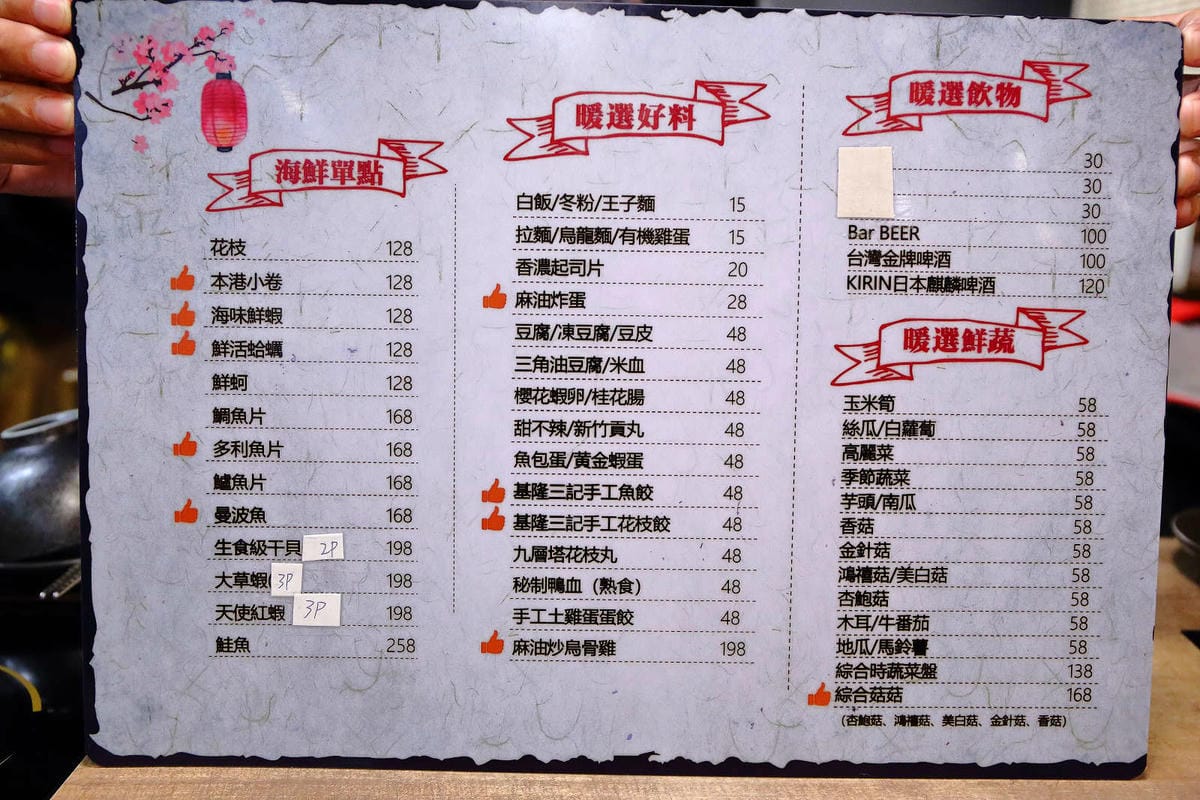 海鮮單點
花枝 128
本港小卷 128
海味鮮蝦 128
鮮活蛤蠣 128
鮮蚵 128
鯛魚片 168
多利魚片 168
鱸魚片 168
曼波魚 168
生食級干貝 2P 198
大草蝦( 3P 198
天使紅蝦 3P 198
鮭魚 258
暖選好料
白飯/冬粉/王子麵 15
拉麵/烏龍麵/有機雞蛋 15
香濃起司片 20
麻油炸蛋 28
豆腐/凍豆腐/豆皮 48
三角油豆腐/米血 48
櫻花蝦卵/桂花腸 48
甜不辣/新竹貢丸 48
魚包蛋/黃金蝦蛋 48
基隆三記手工魚餃 48
基隆三記手工花枝餃 48
九層塔花枝丸 48
秘制鴨血（熟食） 48
手工土雞蛋蛋餃 48
麻油炒烏骨雞 198
暖選飲物
30
30
30
Bar BEER 100
台灣金牌啤酒 100
KIRIN日本麒麟啤酒 120
暖選鮮蔬
玉米筍 58
絲瓜/白蘿蔔 58
高麗菜 58
季節蔬菜 58
芋頭/南瓜 58
香菇 58
金針菇 58
鴻禧菇/美白菇 58
杏鮑菇 58
木耳/牛番茄 58
地瓜/馬鈴薯 58
綜合時蔬菜盤 138
綜合菇菇 168
（杏鮑菇、鴻禧菇、美白菇、金針菇、香菇）